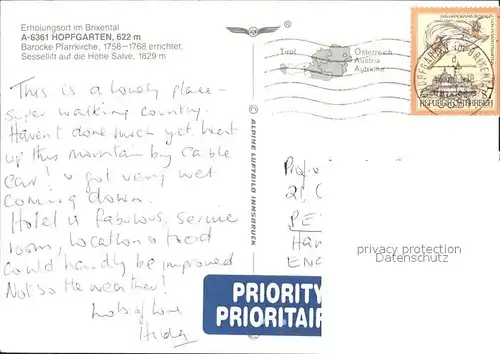 Erholungsort im Brixental
A-6361 HOPFGARTEN, 622 m
Barocke Pfarrkirche, 1758-1768 errichtet,
Sessellift auf die Hohe Salve, 1829 m
This is a lovely place -
super walking country.
Haven't done much yet. Went
up this mountain by cable
car! & got very wet
coming down.
Hotel is fabulous, service
room, location & food
could hardly be improved
Not so the weather!
Lots of love
Hilda
© ALPINE LUFTBILD INNSBRUCK
Tirol
Österreich
Austria
Autriche
REPUBLIK ÖSTERREICH
HOPFGARTEN IM BRIXENTAL
2,
PE
Ha
ENG
privacy protection
Datenschutz
PRIORITY
PRIORITAIR